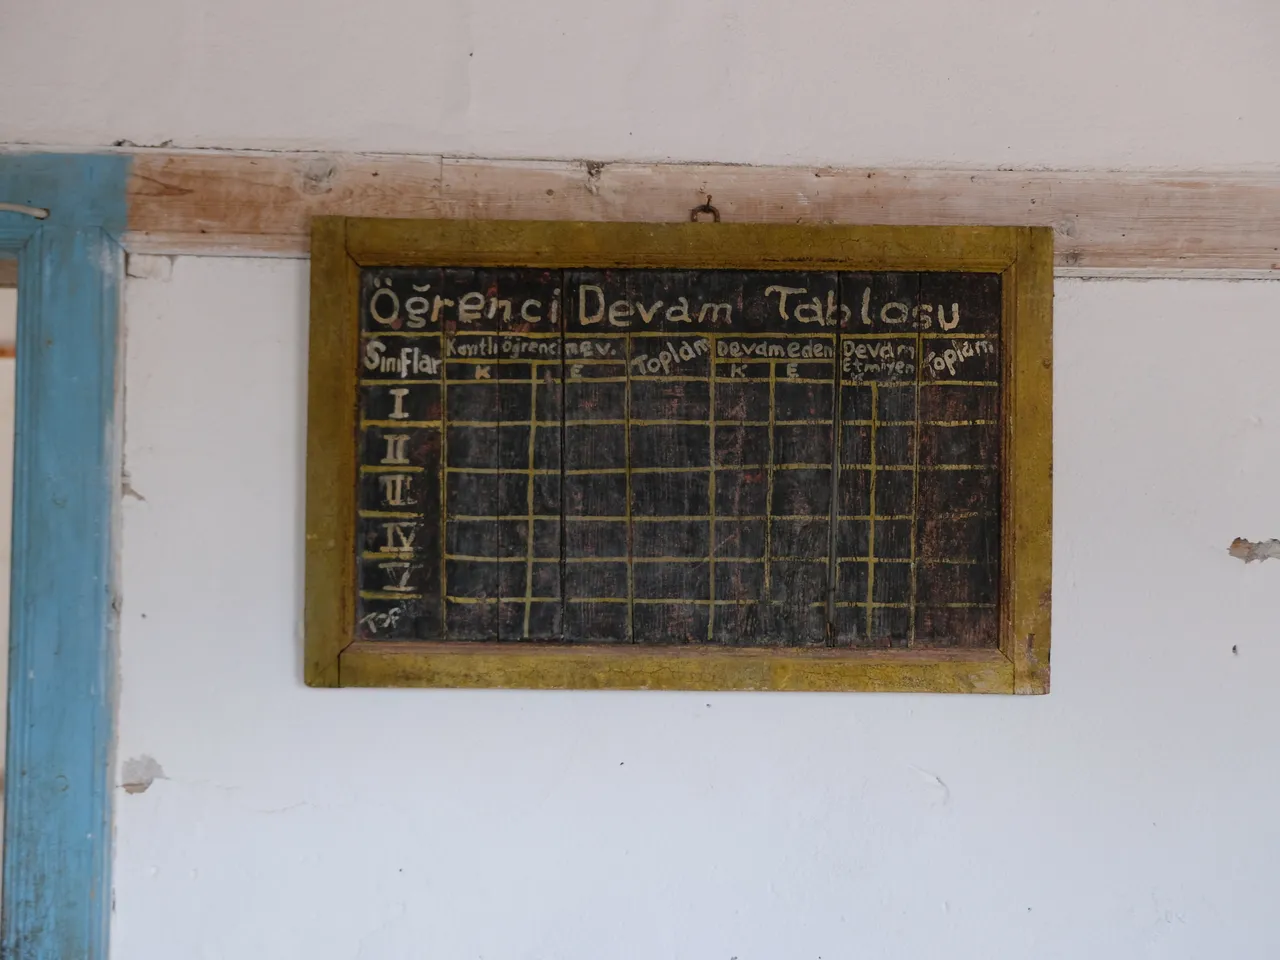 Öğrenci Devam Tablosu
Sınıflar Kayıtlı öğrenci mev. Toplam Devameden Devam Etmiyen Toplam
K E K E K
I
II
III
IV
V
Top